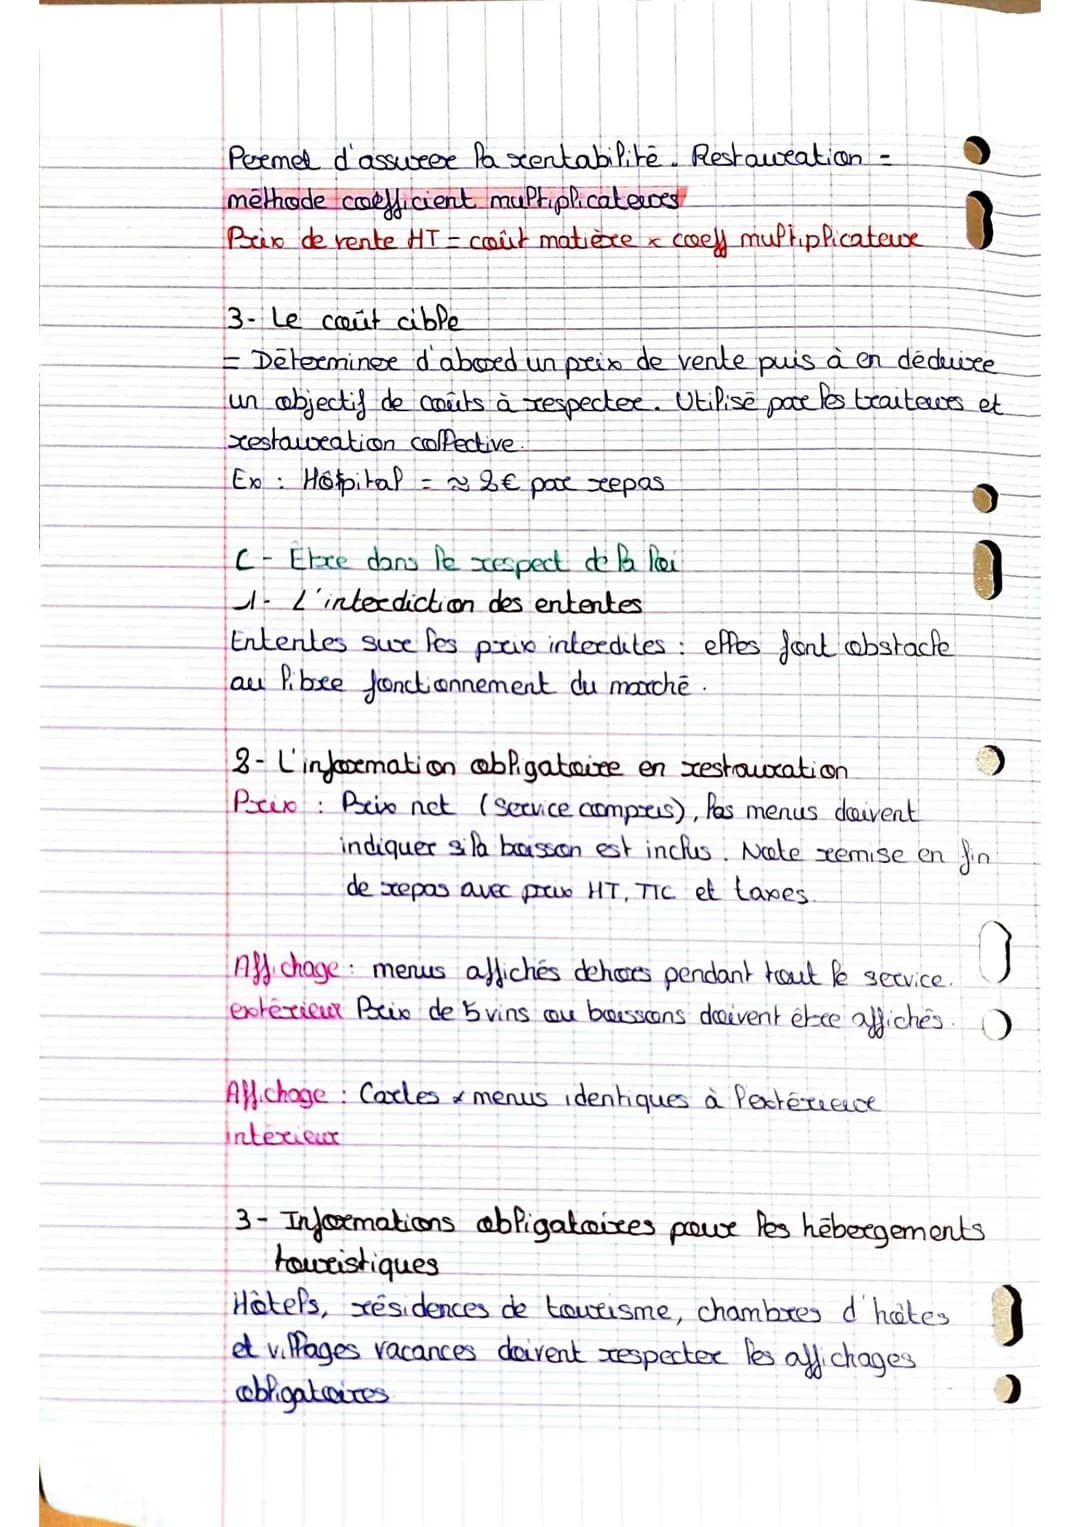 Permet d'assurer la rentabilité. Restauration =
méthode coefficient multiplicateurs
Prix de vente HT = coût matière x coeff multiplicateur
3- Le coût cible
= Déterminer d'abord un prix de vente puis à en déduire
un objectif de coûts à respecter. Utilisé par les traiteurs et
restauration collective.
Ex : Hôpital = ≈ 2€ par repas
C - Etre dans le respect de la loi
1- L'interdiction des ententes
Ententes sur les prix interdites : elles font obstacle
au libre fonctionnement du marché.
2- L'information obligatoire en restauration
Prix : Prix net (service compris), les menus doivent
indiquer si la boisson est inclus. Note remise en fin
de repas avec prix HT, TTC et taxes.
Affichage : menus affichés dehors pendant tout le service.
extérieur Prix de 5 vins ou boissons doivent être affichés.
Affichage : Cartes & menus identiques à l'extérieur
intérieur
3- Informations obligatoires pour les hébergements
touristiques
Hôtels, résidences de tourisme, chambres d'hôtes
et villages vacances doivent respecter les affichages
obligatoires